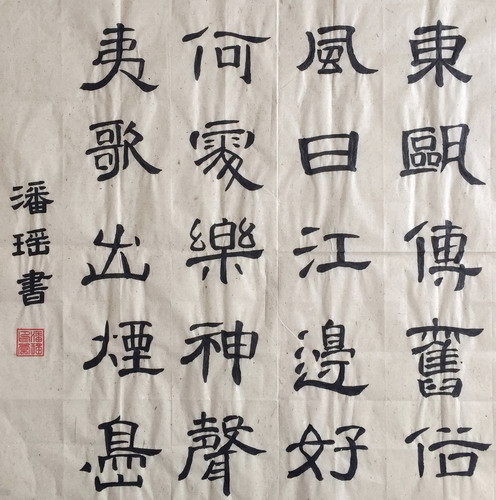 東甌傳舊俗
風日江邊好
何處樂神聲
夷歌出煙島
潘瑶書